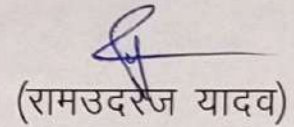 (रामउदरेज यादव)